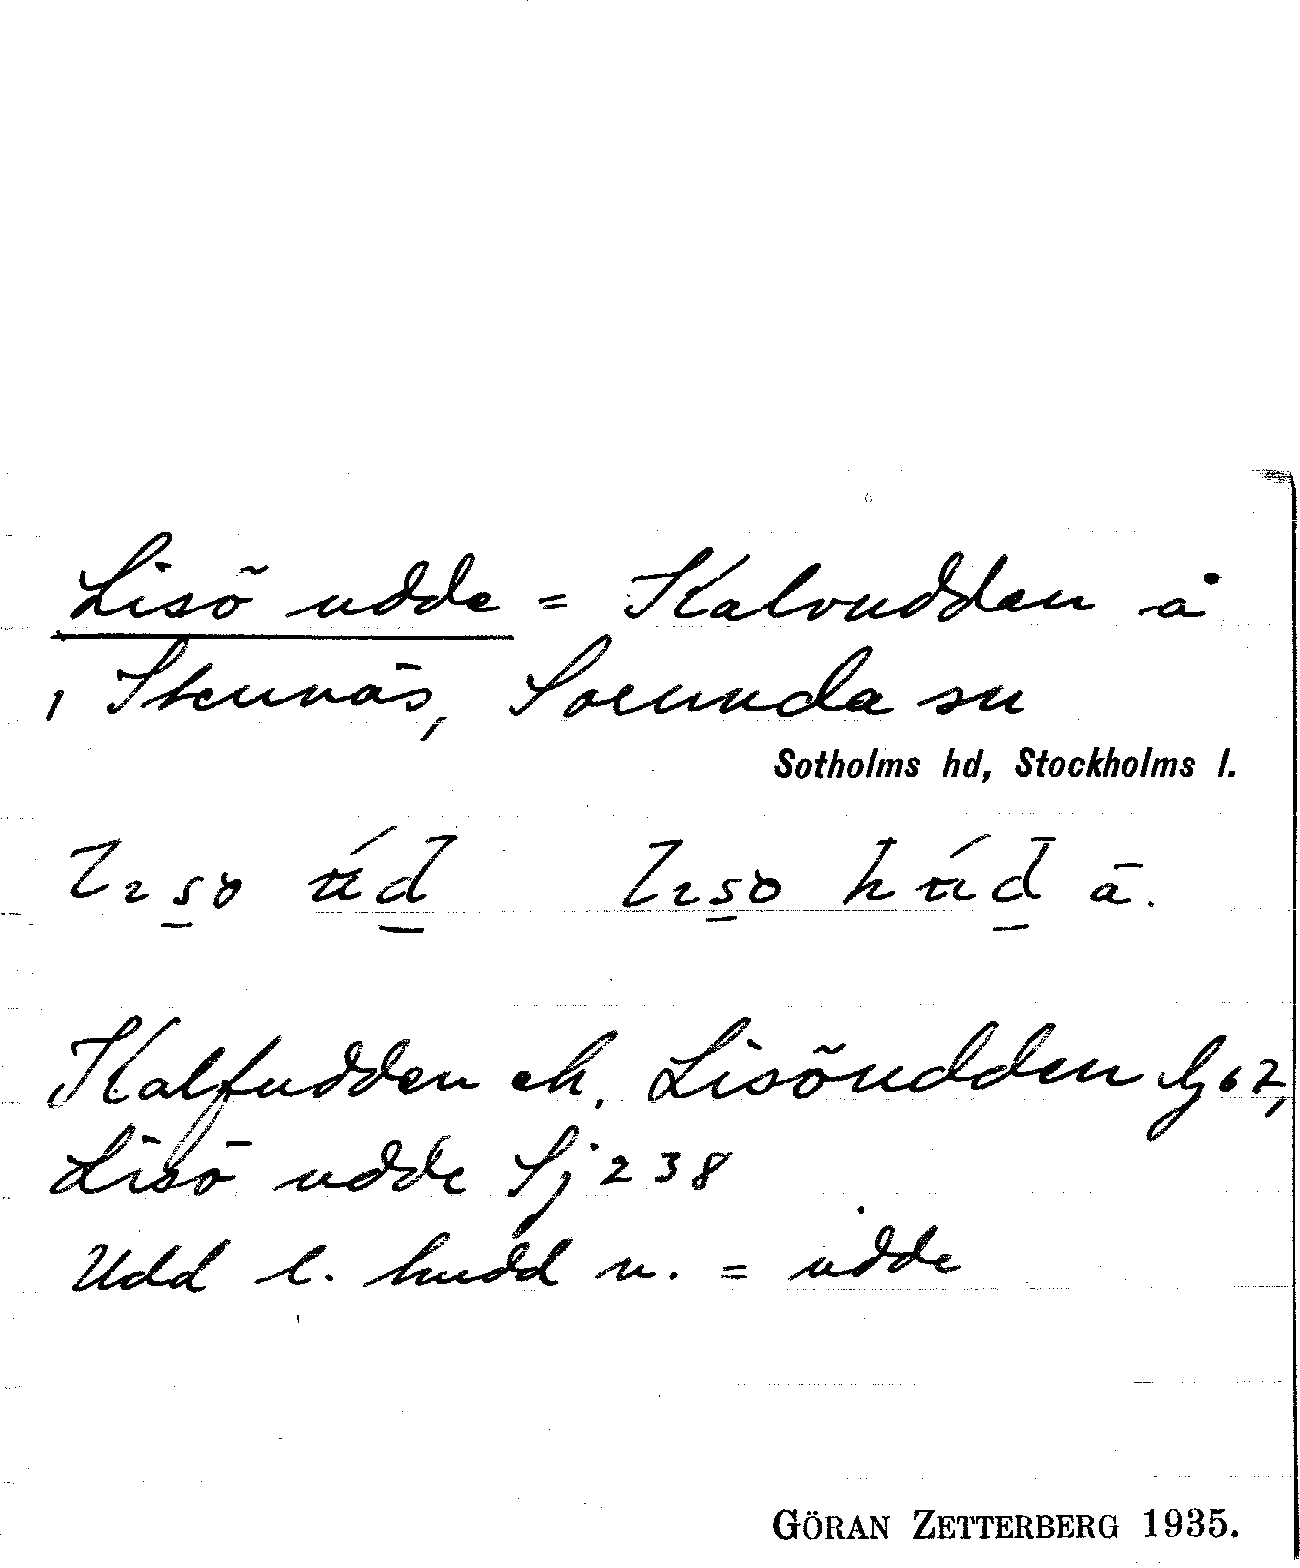 Lisö udde = Kalvudden å
, Stennäs, Sorunda sn
Sotholms hd, Stockholms l.
Kalfudden el. Lisöudden Gj 62,
Lisö udde Sj 238
Udd l. hudd n. = udde
GÖRAN ZETTERBERG 1935.